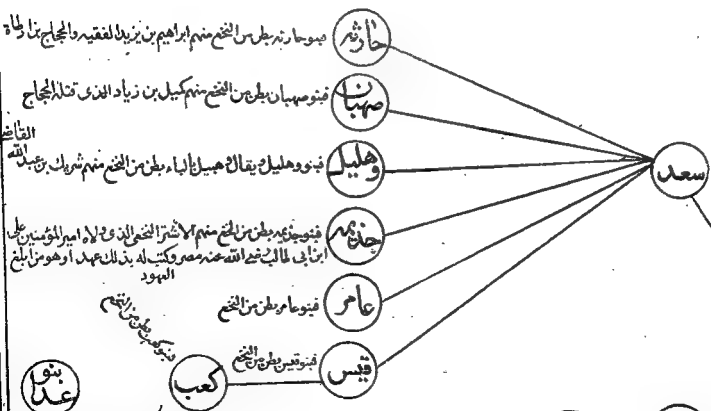 سعد
حارثه
فبنو حارثه بطن من النخع منهم ابراهيم بن يزيد الفقيه والحجاج بن ارطاة
صهبان
فبنو صهبان بطن من النخع منهم كميل بن زياد الذى قتله الحجاج
وهليل
فبنو وهليل ويقال وهبيل بالباء بطن من النخع منهم شريك بن عبد الله
القاضى
جذيمه
فبنو جذيمه بطن من النخع منهم الاشتر النخعى الذى ولاه امير المؤمنين على
ابن ابى طالب رضى الله عنه مصر وكتب له بذلك عهدا وهو من ابلغ
العهود
عامر
فبنو عامر بطن من النخع
قيس
فبنو قيس بطن من النخع
كعب
فبنو كعب بطن من النخع
بنو
عدا